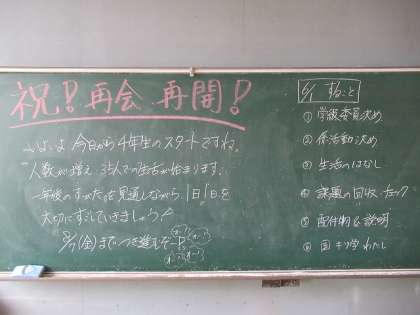 祝!再会 再開!
いよいよ今日から4年生のスタートですね。
人数が増え、35人での生活が始まります。
一年後のすがたを見通しながら、1日1日を
大切にすごしていきましょう
8/7(金)まで、つき進むぞー
6/1 すること
① 学級委員決め
② 係活動決め
③ 生活のはなし
④ 課題の回収・チェック
⑤ 配付物&説明
⑥ 国